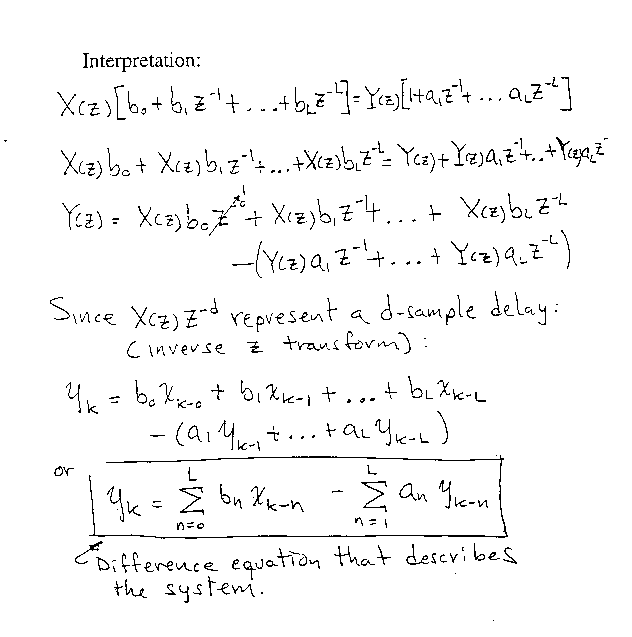 Interpretation:
X(z)[b₀ + b₁ z⁻¹ + ... + b_L z⁻ᴸ] = Y(z)[1 + a₁z⁻¹ + ... a_L z⁻ᴸ]
X(z)b₀ + X(z)b₁z⁻¹ + ... + X(z)b_L z⁻ᴸ = Y(z) + Y(z)a₁z⁻¹ + .. + Y(z)a_L z⁻ᴸ
Y(z) = X(z)b₀z⁻⁰ + X(z)b₁z⁻¹ + ... + X(z)b_L z⁻ᴸ
-(Y(z)a₁z⁻¹ + ... + Y(z)a_L z⁻ᴸ)
Since X(z)z⁻ᵈ represent a d-sample delay:
(inverse z transform):
y_k = b₀x_{k-0} + b₁x_{k-1} + ... + b_L x_{k-L}
- (a₁y_{k-1} + ... + a_L y_{k-L})
or
y_k = Σ_{n=0}^{L} b_n x_{k-n} - Σ_{n=1}^{L} a_n y_{k-n}
Difference equation that describes
the system.